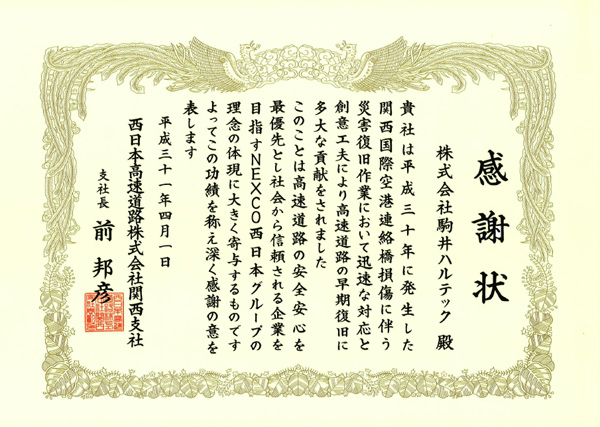 感謝状
株式会社駒井ハルテック 殿
貴社は平成三十年に発生した
関西国際空港連絡橋損傷に伴う
災害復旧作業において迅速な対応と
創意工夫により高速道路の早期復旧に
多大な貢献をされました
このことは高速道路の安全安心を
最優先とし社会から信頼される企業を
目指すNEXCO西日本グループの
理念の体現に大きく寄与するものです
よってこの功績を称え深く感謝の意を
表します
平成三十一年四月一日
西日本高速道路株式会社関西支社
支社長 前 邦彦